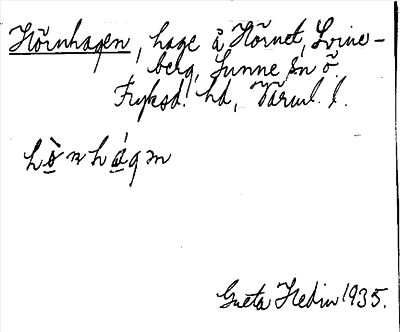 Hörnhagen, hage å Hörnet, Svine-
berg, Sunne sn Ö.
Fryksd. hd, Värml. l.
Greta Hedin 1935.